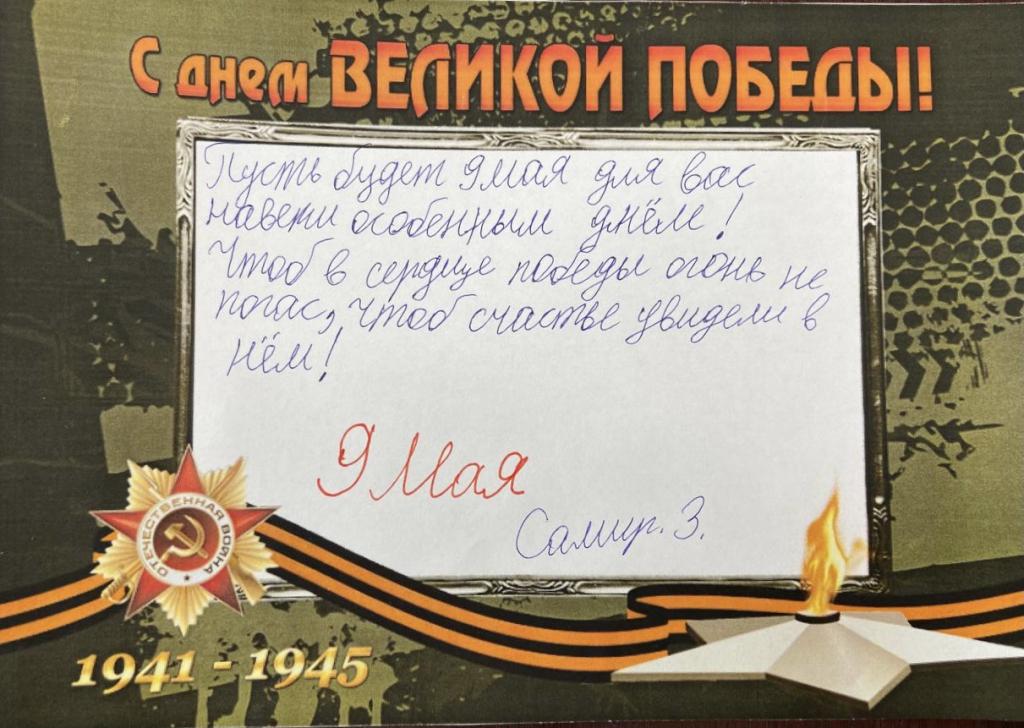 С днем ВЕЛИКОЙ ПОБЕДЫ!
Пусть будет 9 мая для вас
навеки особенным днём!
Чтоб в сердце победы огонь не
погас, чтоб счастье увидели в
нём!
9 Мая
Самир. З.
ОТЕЧЕСТВЕННАЯ ВОЙНА
1941 - 1945